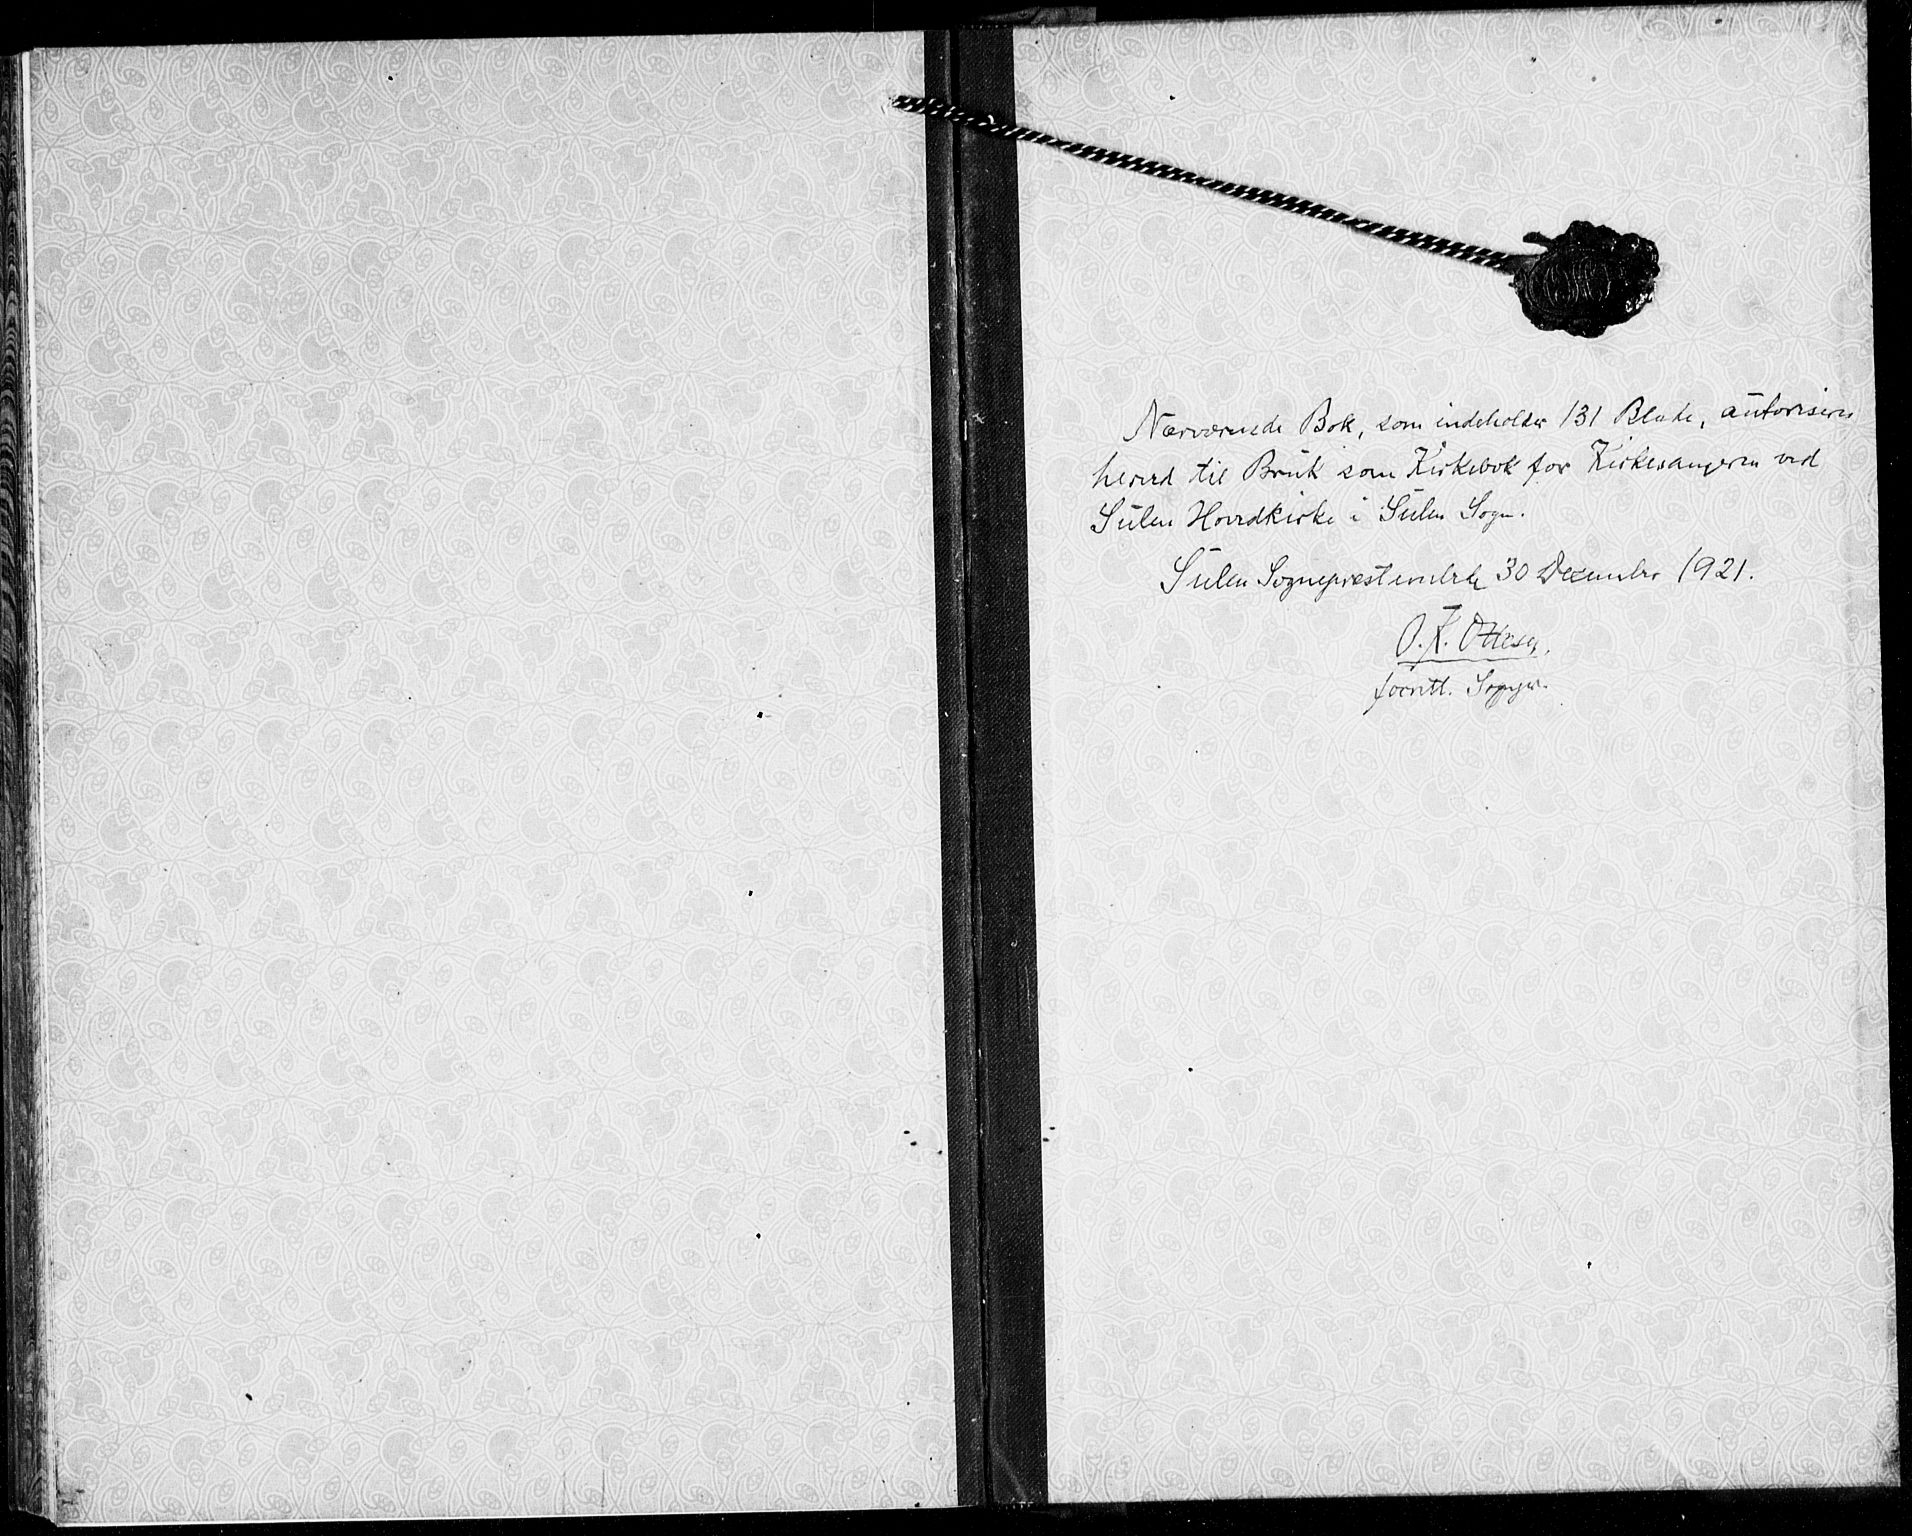 Nærværende Bok, som indeholder 131 Blade, autoriseres
herved til Bruk som Kirkebok for Kirkesangeren ved
Sulen Hovedkirke i Sulen Sogn.
Sulen Sogneprestembede 30 Dezember 1921.
O. K. Ottesen,
Sognepr.